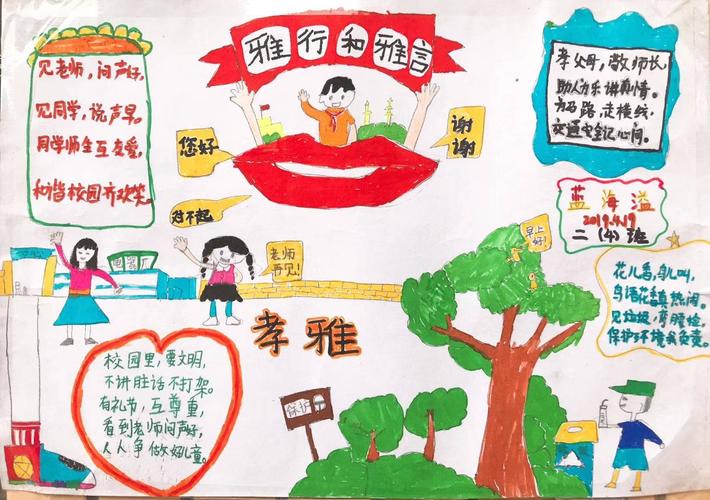 雅行和雅言
见老师，问声好，
见同学，说声早。
同学师生互友爱，
和谐校园齐欢笑。
您好
谢谢
对不起
孝父母，敬师长，
助人为乐讲真情。
为马路，走横线，
交通安全记心间。
蓝海溢
2019.4.19
二（4）班
早上好！
老师
再见！
孝雅
花儿香，鸟儿叫，
鸟语花香真热闹。
见垃圾，弯腰捡，
保护环境我负责。
校园里，要文明，
不讲脏话不打架。
有礼节，互尊重，
看到老师问声好，
人人争做好儿童。
保护